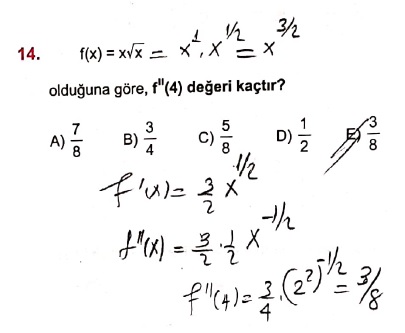 14. f(x) = x√x = x¹ . x^1/2 = x^3/2
olduğuna göre, f''(4) değeri kaçtır?
A) 7/8 B) 3/4 C) 5/8 D) 1/2 E) 3/8
f'(x) = 3/2 x^1/2
f''(x) = 3/2 . 1/2 x^-1/2
f''(4) = 3/4 . (2²)^-1/2 = 3/8